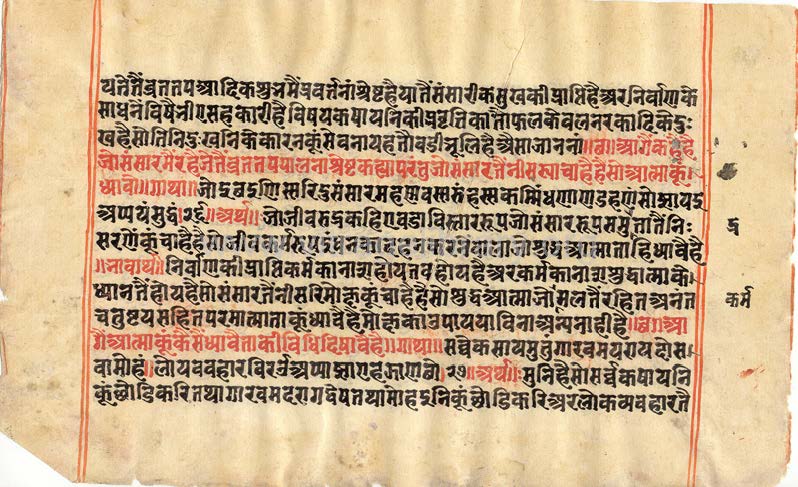 यतेतैंव्रततपआदिकशुभमैंप्रवर्त्तनांश्रेष्टहैयातैंसंसारीकसुखकीप्राप्तिहैअरनिर्वाणके
साधनेविषैभीएसहकारीहैविषयकषायनिकीप्रवृत्तिकातौफलकेवलनरकादिकेदुः
खहैसोतिनिदुःखनिकेकारनकूंसेवनायहतौबडीभूलिहैऐसाजाननां॥छ॥आगैंकहैहै
जोसंसारमैरहैजेतैंव्रततपपालनांश्रेष्टकह्यापरंतुजोसंसारतैंनीसस्याचाहैहैसोआत्माकूं
ध्यावै॥गाथा॥जोइछइणिस्सरिदुंसंसारमहणवस्सरुंदस्सकम्मिंधणाणडहणंसोझायइ
अप्पयंसुद्धं२६॥अर्थ॥जोजीवरुद्रकहिएबडाविस्ताररूपजोसंसाररूपसमुद्रतातैंनिः
सरणेंकूंचाहैहैसोजीव
॥भावार्थ॥निर्वाणकीप्राप्तिकर्मकानाशहोयतबहोयहैअरकर्मकानाशशुद्धात्माके
ध्यानतैंहोयहैसोसंसारतैंनीसरिमोक्षकूंचाहैहैसोशुद्धआत्माजोमलतैंरहितअनंत
चतुष्टयसहितपरमात्माताकूंध्यावैहैमोक्षकाउपाययाविनाअन्यनाहीहै॥छ॥आ
गैंआत्माकूंकैसैंध्यावैताकीविधिदिषावैहै॥गाथा॥सव्वेकसायमुत्तुंगारवमयरायदोस
वामोहं।लोयववहारविरदोअप्पाझाएहझाणत्थो२७॥अर्थ॥मुनिहैसोसर्वकषायनि
कूंछोडिकरितथागारवमदरागद्वेषतथामोहइनिकूंछोडिकरिअरलोकव्यवहारतै
कर्म